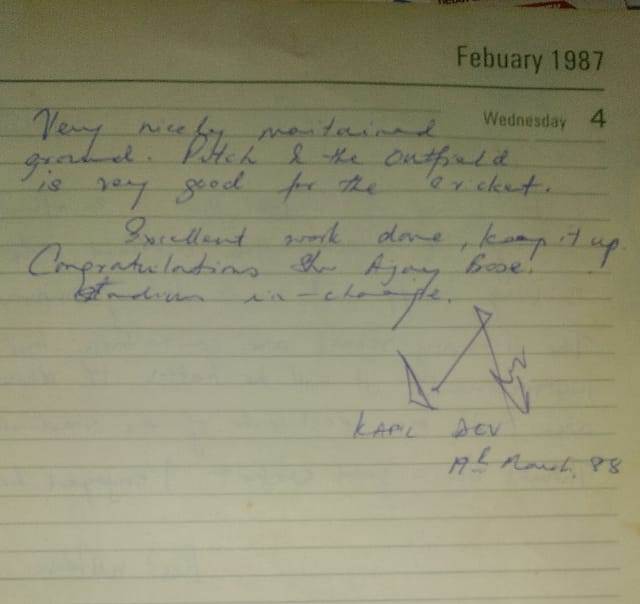 Febuary 1987
Wednesday 4
Very nicely maintained
ground. Pitch & the outfield
is very good for the cricket.
Excellent work done, keep it up.
Congratulations Shr Ajay Bose.
Stadium in-charge.
KAPIL DEV
March, 88